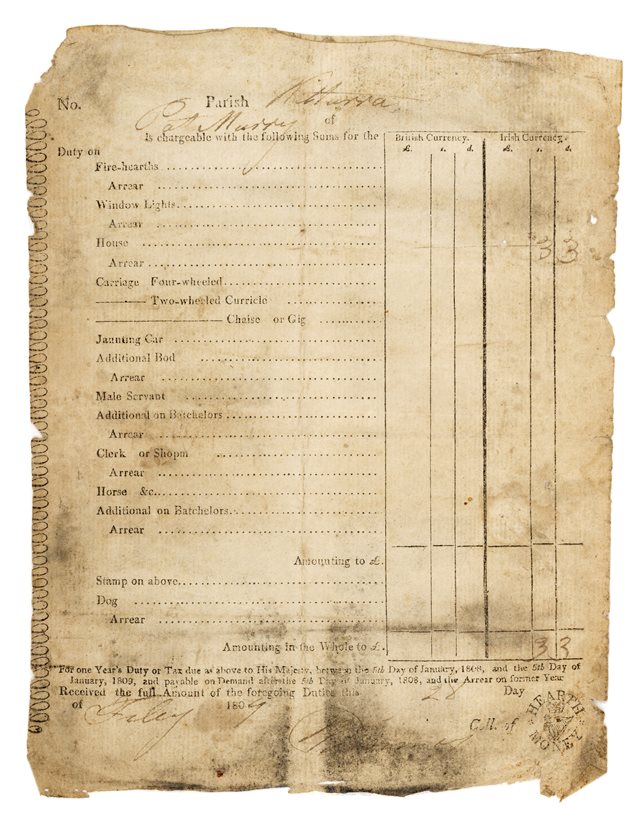 No. Parish Kitturra
of
Pat Murry
Is chargeable with the following Sums for the
British Currency. Irish Currency.
£. s. d. £. s. d.
Duty on
Fire-hearths
Arrear
Window Lights
Arrear
House 3 3
Arrear
Carriage Four-wheeled
Two-wheeled Curricle
Chaise or Gig
Jaunting Car
Additional Bod
Arrear
Male Servant
Additional on Batchelors
Arrear
Clerk or Shopm
Arrear
Horse &c.
Additional on Batchelors.
Arrear
Amounting to £.
Stamp on above
Dog
Arrear
Amounting in the Whole to £. 3 3
For one Year's Duty or Tax due as above to His Majesty, between the 5th Day of January, 1808, and the 5th Day of
January, 1809, and payable on Demand after the 5th Day of January, 1808, and the Arrear on former Year
Received the full Amount of the foregoing Duties this 28 Day
of 1809
Coll. of
HEARTH MONEY